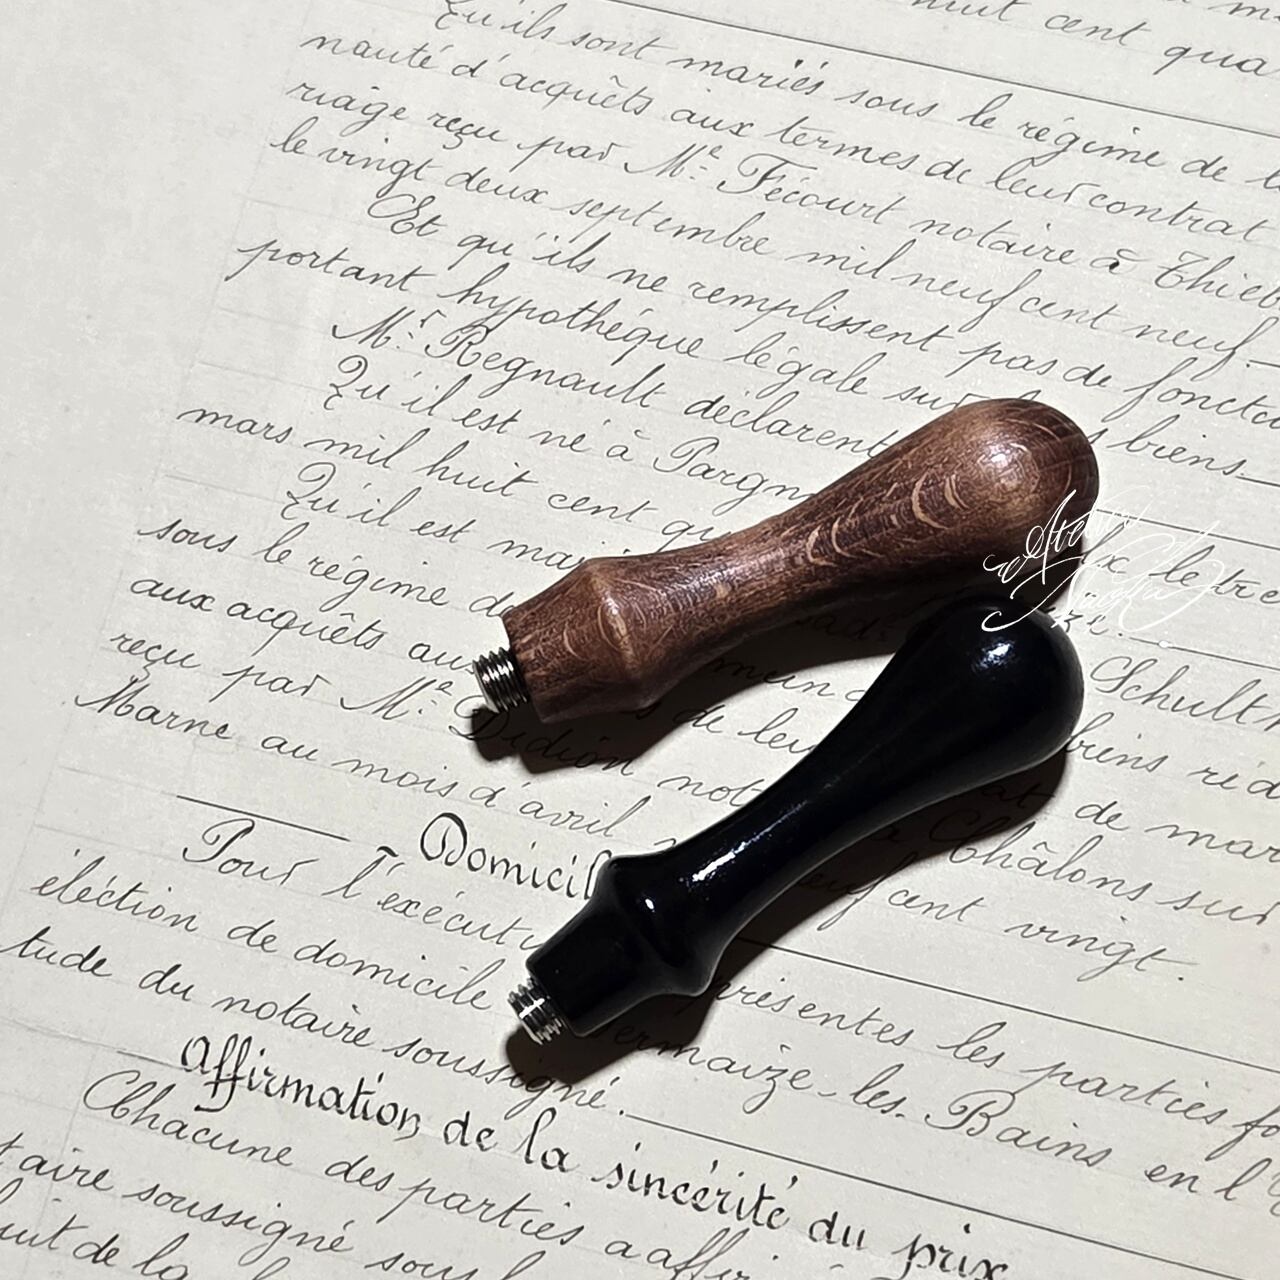 nuit cent qua
Qu'ils sont mariés sous le régime de la
nauté d'acquêts aux termes de leur contrat
riage reçu par Me Fécourt notaire à Thieb
le vingt deux septembre mil neuf cent neuf.
Et qu'ils ne remplissent pas de foncti
portant hypothéque légale sur biens.
Mr Regnault déclarent
Qu'il est né à Pargn
mars mil huit cent qu
Qu'il est mari le tre
sous le régime de
aux acquêts au Schult
reçu par Me Didion not de leur biens réd
Marne au mois d'avril de mar
Châlons sur
Domicil neuf cent vingt.
Pour l'exécuti présentes les parties fo
eléction de domicile Sermaize-les-Bains en l'é
tude du notaire soussigné.
Affirmation de la sincérité du prix
Chacune des parties a affir
taire soussigné sous
de la
Atelier